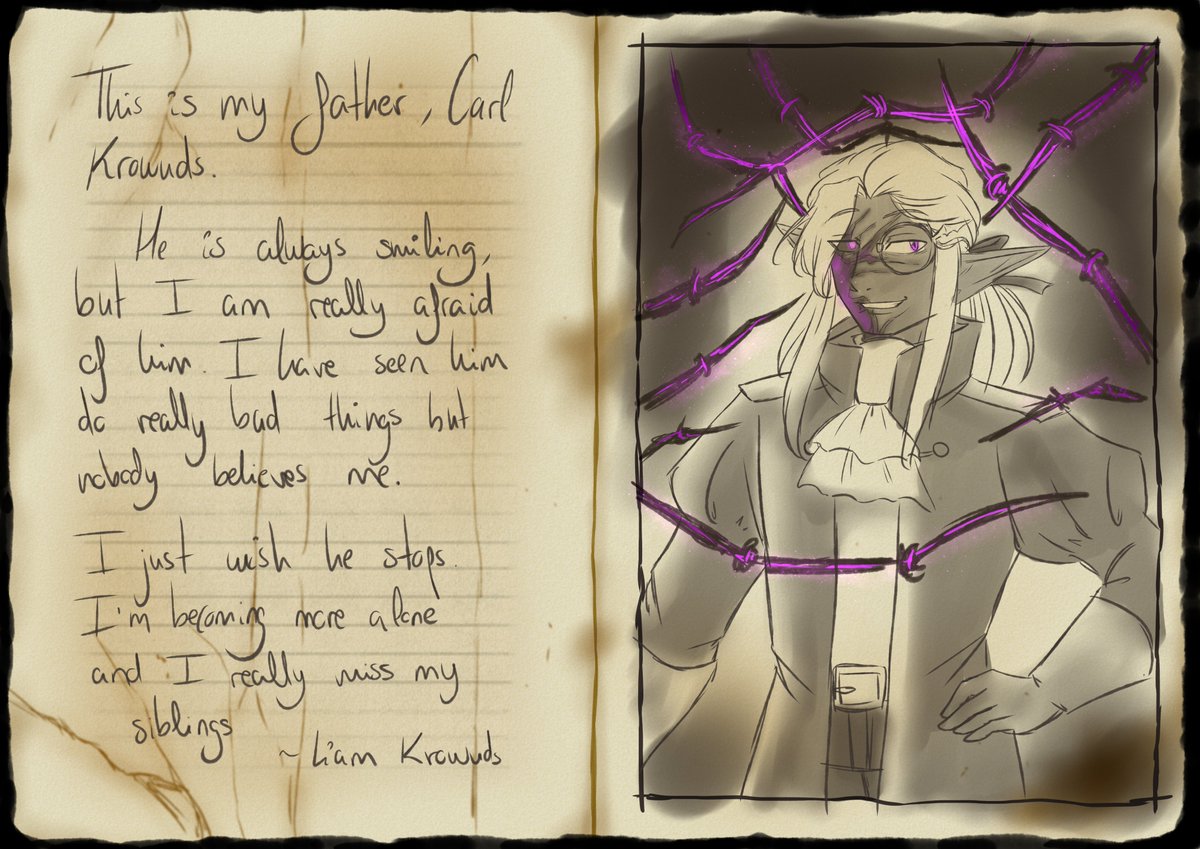 This is my father, Carl
Krowuds.
He is always smiling,
but I am really afraid
of him. I have seen him
do really bad things but
nobody believes me.
I just wish he stops.
I'm becoming more alone
and I really miss my
siblings
~ Liam Krowuds